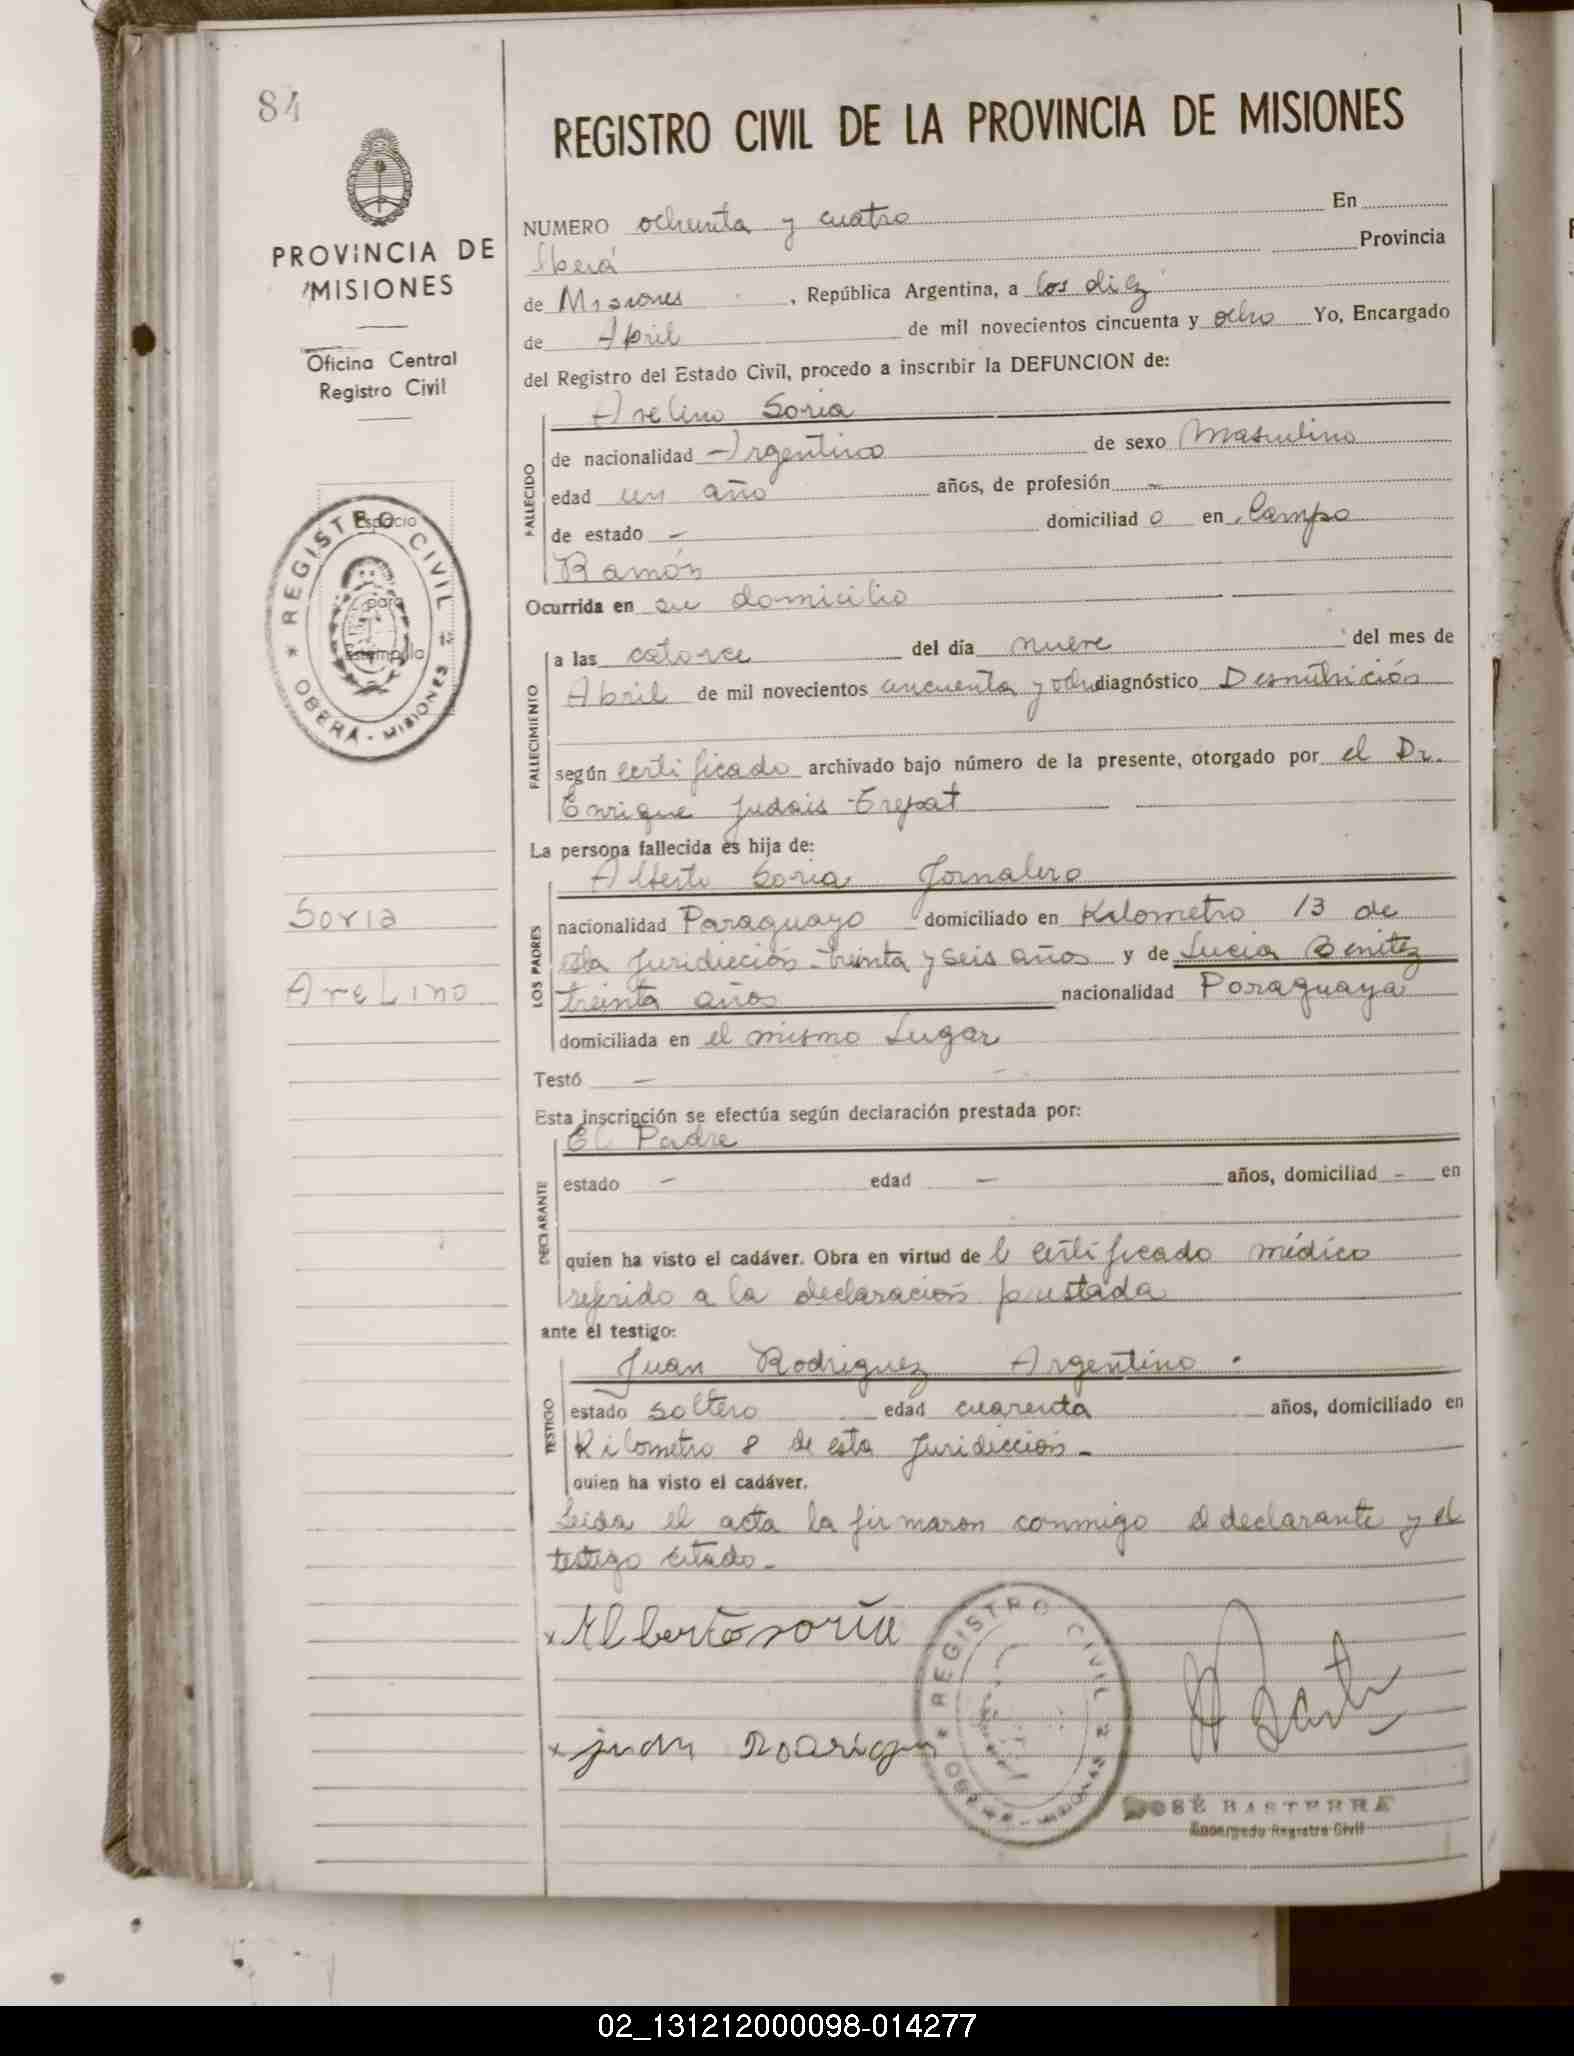 84
PROVINCIA DE
MISIONES
Oficina Central
Registro Civil
Espacio
para
Estampilla
* REGISTRO CIVIL *
OBERA - MISIONES
Soria
Avelino
REGISTRO CIVIL DE LA PROVINCIA DE MISIONES
NUMERO ochenta y cuatro En
Oberá Provincia
de Misiones, República Argentina, a los diez
de Abril de mil novecientos cincuenta y ocho Yo, Encargado
del Registro del Estado Civil, procedo a inscribir la DEFUNCION de:
FALLECIDO
Avelino Soria
de nacionalidad Argentino de sexo Masculino
edad un año años, de profesión -
de estado - domiciliad o en Campo
Ramón
Ocurrida en su domicilio
FALLECIMIENTO
a las catorce del día nueve del mes de
Abril de mil novecientos cincuenta y ocho diagnóstico Desnutrición
según certificado archivado bajo número de la presente, otorgado por el Dr.
Enrique Judais Trepat
La persona fallecida es hija de:
LOS PADRES
Alberto Soria Jornalero
nacionalidad Paraguayo domiciliado en Kilometro 13 de
esta Juridicción - treinta y seis años y de Lucia Benitez
treinta años nacionalidad Paraguaya
domiciliada en el mismo Lugar
Testó -
Esta inscripción se efectúa según declaración prestada por:
DECLARANTE
El Padre
estado - edad - años, domiciliad - en
quien ha visto el cadáver. Obra en virtud de l certificado médico
referido a la declaración prestada
ante el testigo:
TESTIGO
Juan Rodriguez Argentino.
estado soltero edad cuarenta años, domiciliado en
Kilometro 8 de esta Juridicción -
quien ha visto el cadáver.
Leida el acta la firmaron conmigo el declarante y el
testigo citado -
x Alberto soria
REGISTRO CIVIL
* OBERA - MISIONES *
x juan
JOSÉ BASTERRA
Encargado Registro Civil
02_131212000098-014277